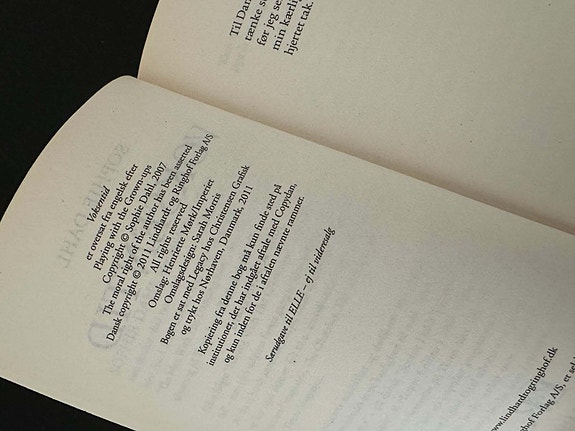 Til Dan
tænke s
før jeg se
min kærli
hjertet tak.
Voksentid
er oversat fra engelsk efter
Playing with the Grown-ups
Copyright © Sophie Dahl, 2007
The moral right of the author has been asserted
Dansk copyright © 2011 Lindhardt og Ringhof Forlag A/S
All rights reserved
Omslag: Henriette Mørk/Imperiet
Omslagsdesign: Sarah Morris
Bogen er sat med Legacy hos Christensen Grafisk
og trykt hos Nørhaven, Danmark, 2011
Kopiering fra denne bog må kun finde sted på
institutioner, der har indgået aftale med Copydan,
og kun inden for de i aftalen nævnte rammer.
Særudgave til ELLE – ej til videresalg
www.lindhardtogringhof.dk
ghof Forlag A/S, er sel